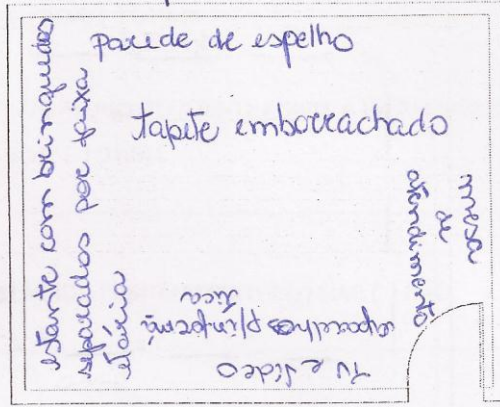 parede de espelho
tapete emborrachado
estante com brinquedos
separados por faixa
etária
mesa
de
atendimento
TV e vídeo
aparelhos p/infermá
tica